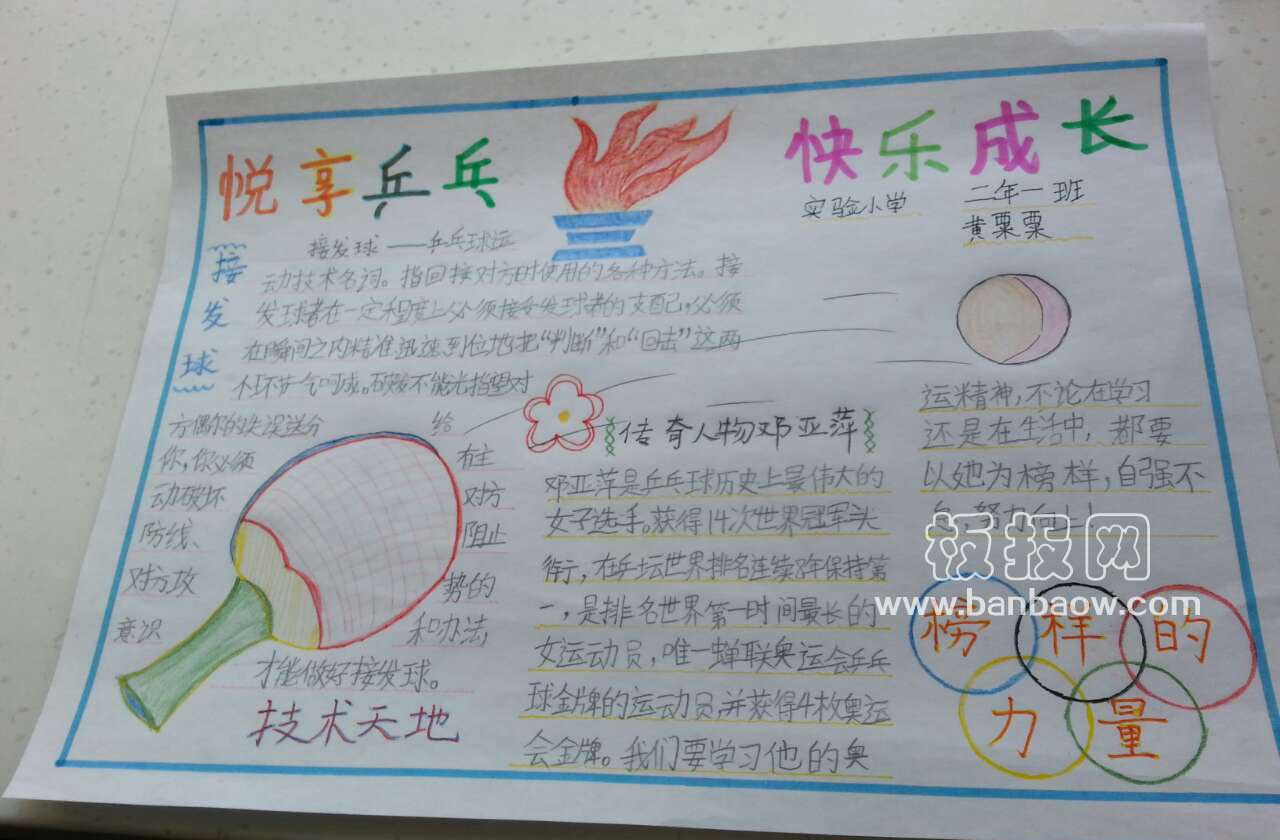 悦享乒乓
快乐成长
实验小学
二年一班
黄粟粟
接发球
接发球——乒乓球运
动技术名词。指回接对方时使用的各种方法。接
发球者在一定程度上必须接受发球者的支配，必须
在瞬间之内精准迅速到位地把“判断”和“回击”这两
不能光指望对
方偶尔的失误送分 给
你，你必须 有主
动破坏 对方
防线、 阻止
对方攻 势的
意识 和办法，
才能做好接发球。
技术天地
传奇人物邓亚萍
邓亚萍是乒乓球历史上最伟大的
女子选手。获得14次世界冠军头
衔，在乒坛世界排名连续8年保持第
一，是排名世界第一时间最长的
女运动员，唯一蝉联奥运会乒乓
球金牌的运动员，并获得4枚奥运
会金牌。我们要学习他的奥
运精神，不论在学习
还是在生活中，都要
以她为榜样，自强不
努力向上！
榜样的
力量
板报网
www.banbaow.com